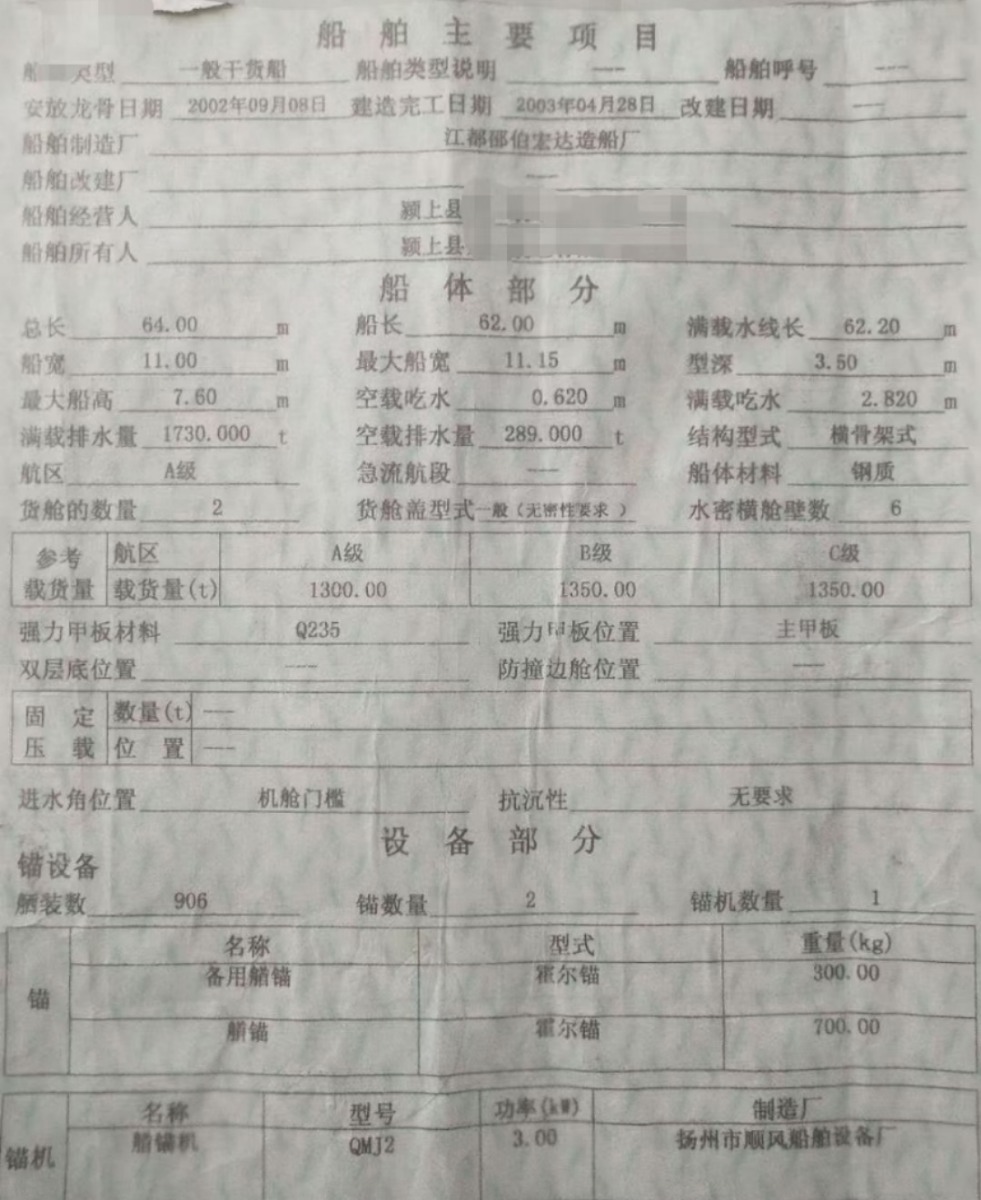 船舶主要项目
船 类型 一般干货船 船舶类型说明 --- 船舶呼号 ---
安放龙骨日期 2002年09月08日 建造完工日期 2003年04月28日 改建日期 ---
船舶制造厂 江都邵伯宏达造船厂
船舶改建厂 ---
船舶经营人 颍上县
船舶所有人 颍上县
船体部分
总长 64.00 m 船长 62.00 m 满载水线长 62.20 m
船宽 11.00 m 最大船宽 11.15 m 型深 3.50 m
最大船高 7.60 m 空载吃水 0.620 m 满载吃水 2.820 m
满载排水量 1730.000 t 空载排水量 289.000 t 结构型式 横骨架式
航区 A级 急流航段 --- 船体材料 钢质
货舱的数量 2 货舱盖型式 一般（无密性要求 ） 水密横舱壁数 6
参考 航区 A级 B级 C级
载货量 载货量(t) 1300.00 1350.00 1350.00
强力甲板材料 Q235 强力甲板位置 主甲板
双层底位置 --- 防撞边舱位置 ---
固定 数量(t) ---
压载 位置 ---
进水角位置 机舱门槛 抗沉性 无要求
设备部分
锚设备
舾装数 906 锚数量 2 锚机数量 1
名称 型式 重量(kg)
备用艏锚 霍尔锚 300.00
锚
艏锚 霍尔锚 700.00
名称 型号 功率(kW) 制造厂
锚机 艏锚机 QMJ2 3.00 扬州市顺风船舶设备厂